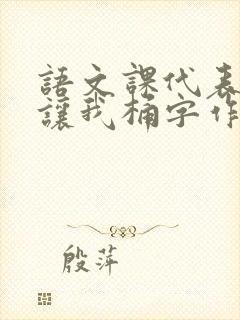 語文課代表
讓我桶字作
殷萍